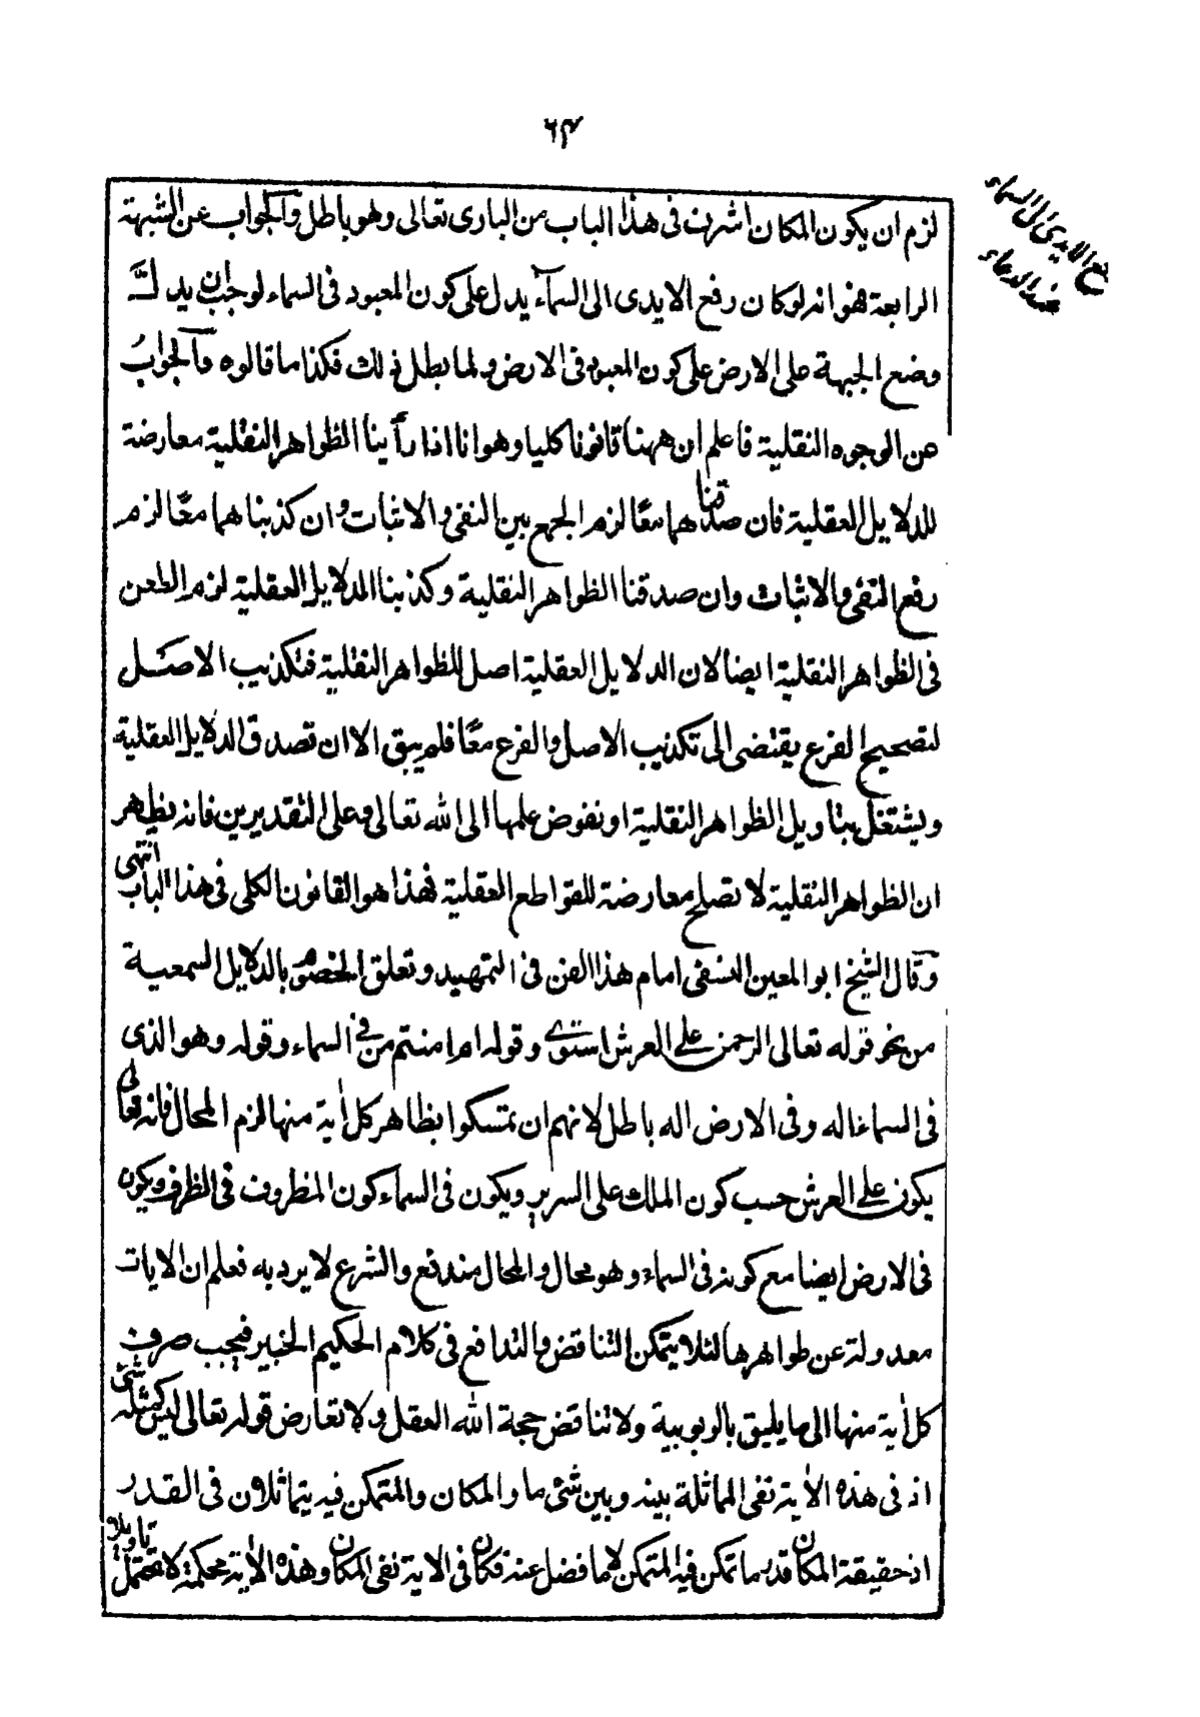 ٦٣
رفع الايدى الى السماء
عند الدعاء
لزم ان يكون المكان اشرف فى هذا الباب من البارى تعالى وهو باطل والجواب عن الشبهة
الرابعة هو انه لو كان رفع الايدى الى السمآء يدل على كون المعبود فى السماء لوجب ان يدل
وضع الجبهة على الارض على كون المعبود فى الارض ولما بطل ذلك فكذا ما قالوه وآلجوابُ
عن الوجوه النقلية فاعلم ان ههنا قانونا كليا وهو انا اذا رأينا الظواهر النقلية معارضة
للدلايل العقلية فان صدقناهما معًا لزم الجمع بين النفى والاثبات وان كذبناهما معًا لزم
رفع النفى والاثبات وان صدقنا الظواهر النقلية وكذبنا الدلايل العقلية لزم الطعن
فى الظواهر النقلية ايضا لان الدلايل العقلية اصل للظواهر النقلية فتكذيب الاصل
لتصحيح الفرع يقتضى الى تكذيب الاصل والفرع معًا فلم يبق الا ان تصدق الدلايل العقلية
ويشتغل بتاويل الظواهر النقلية او نفوض علمها الى الله تعالى وعلى التقديرين فانه يظهر
ان الظواهر النقلية لا تصلح معارضة للقواطع العقلية فهذا هو القانون الكلى فى هذا الباب انتهى
وقال الشيخ ابو المعين النسفى امام هذا الفن فى التمهيد وتعلق الخصوم بالدلايل السمعية
من نحو قوله تعالى الرحمن على العرش استوى وقوله اءمنتم من فى السماء وقوله وهو الذى
فى السماء اله وفى الارض اله باطل لانهم ان تمسكوا بظاهر كل أية منها لزم المحال فانه تعالى
يكون على العرش حسب كون الملك على السرير ويكون فى السماء كون المظروف فى الظرف ويكون
فى الارض ايضا مع كونه فى السماء وهو محال والمحال مندفع والشرع لا يرد به فعلم ان الايات
معدولة عن ظواهرها لئلا يتمكن التناقض والتدافع فى كلام الحكيم الخبير فيجب صرف
كل أية منها الى ما يليق بالربوبية ولا تناقض حجة الله العقل ولا تعارض قوله تعالى ليس كمثله شئ
اذ فى هذه الأية نفى المماثلة بينه وبين شئ ما والمكان والمتمكن فيه يتماثلان فى القدر
اذ حقيقة المكان قدر ما تمكن فيه المتمكن لا ما فضل عنه فكان فى الاية نفى المكان وهذه الأية محكمة لا تحتمل تاويلا